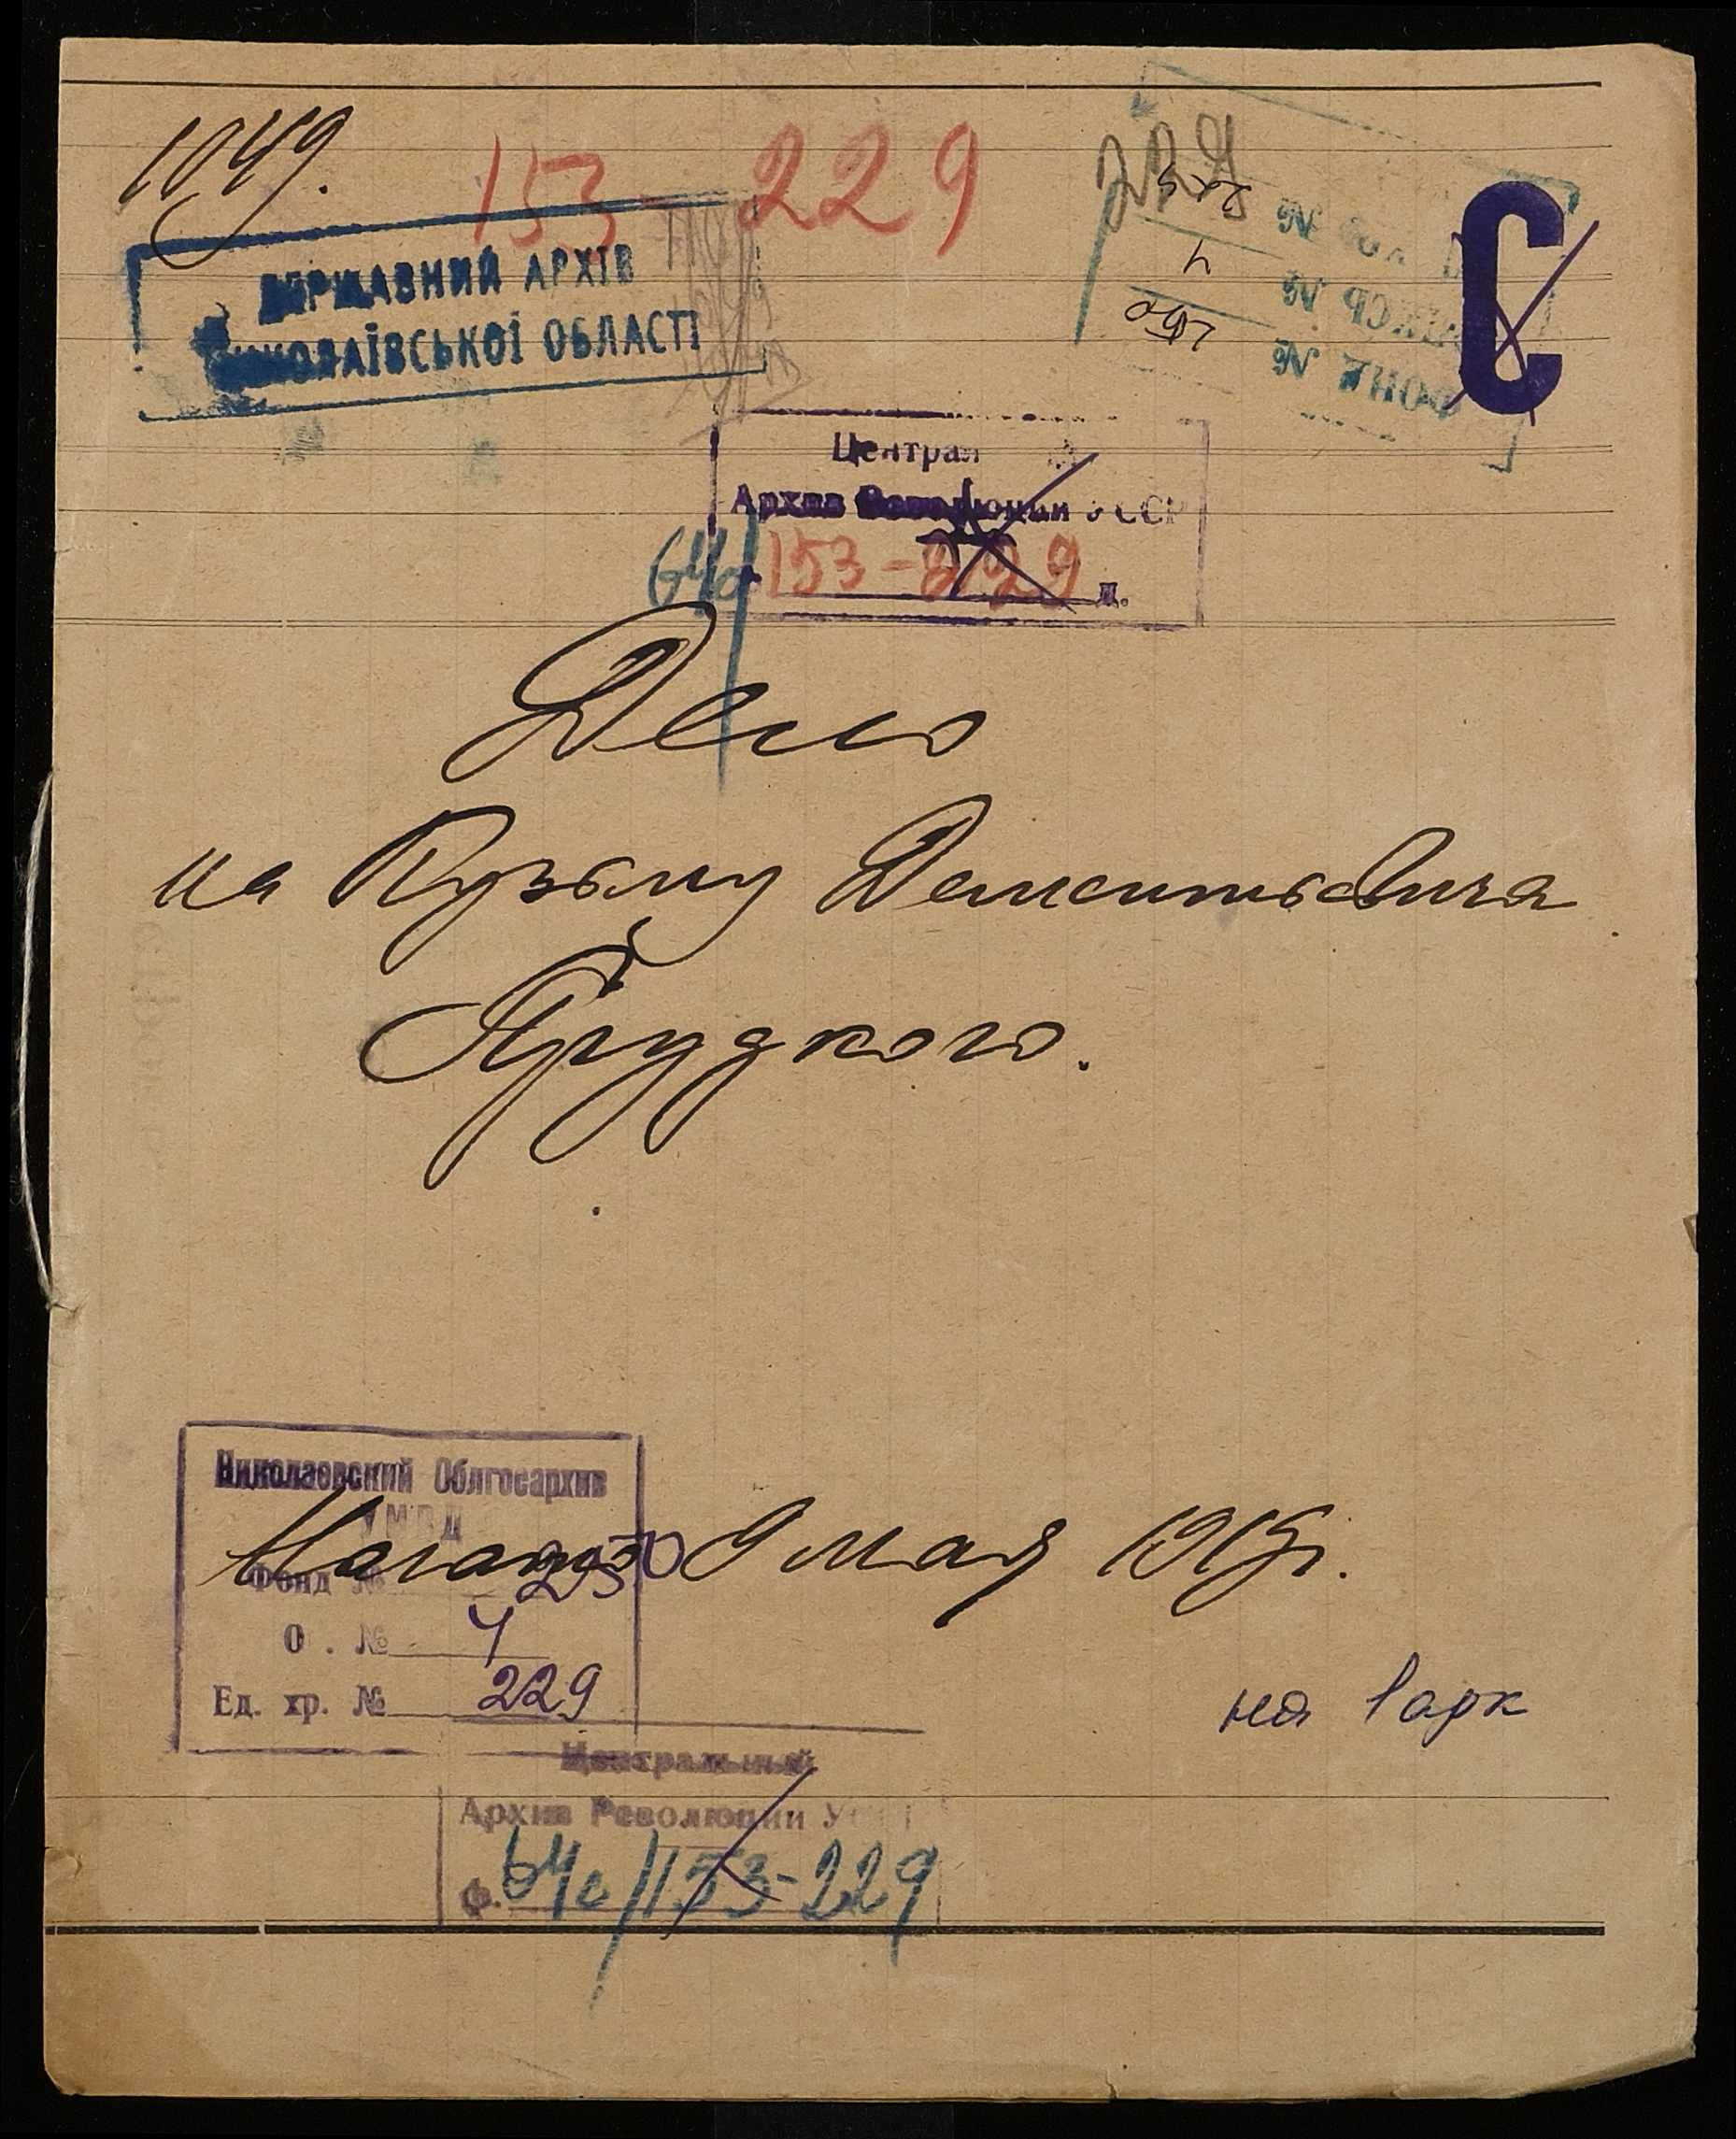 1049.
153 - 229
229
ДЕРЖАВНИЙ АРХІВ
МИКОЛАЇВСЬКОЇ ОБЛАСТІ
ФОНД № 250
ОПИСЬ № 4
№ 229
С
Централ
Архив Революции УССР
64c/153-229 д.
Дело
на Кузьму Дементьевича
Николаевский Облгосархив
УМВД
Фонд № 250
О . № 4
Ед. хр. № 229
Начато 9 мая 1919г.
на 1 арк
Центральный
Архив Революции У
ф. 64c/153-229